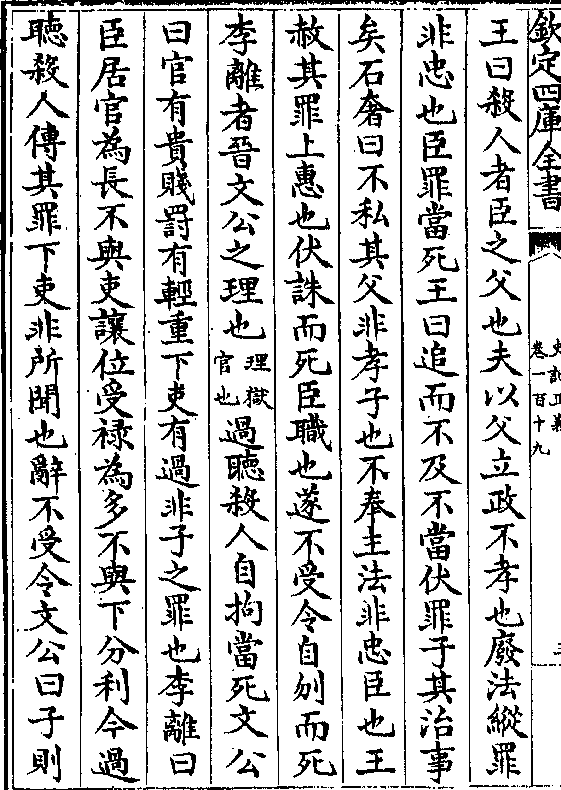 欽定四庫全書
史記正義
卷一百十九
王曰殺人者臣之父也夫以父立政不孝也廢法縱罪
非忠也臣罪當死王曰追而不及不當伏罪子其治事
矣石奢曰不私其父非孝子也不奉主法非忠臣也王
赦其罪上惠也伏誅而死臣職也遂不受令自刎而死
李離者晉文公之理也理獄官也過聽殺人自拘當死文公
曰官有貴賤罰有輕重下吏有過非子之罪也李離曰
臣居官為長不與吏讓位受祿為多不與下分利今過
聽殺人傳其罪下吏非所聞也辭不受令文公曰子則